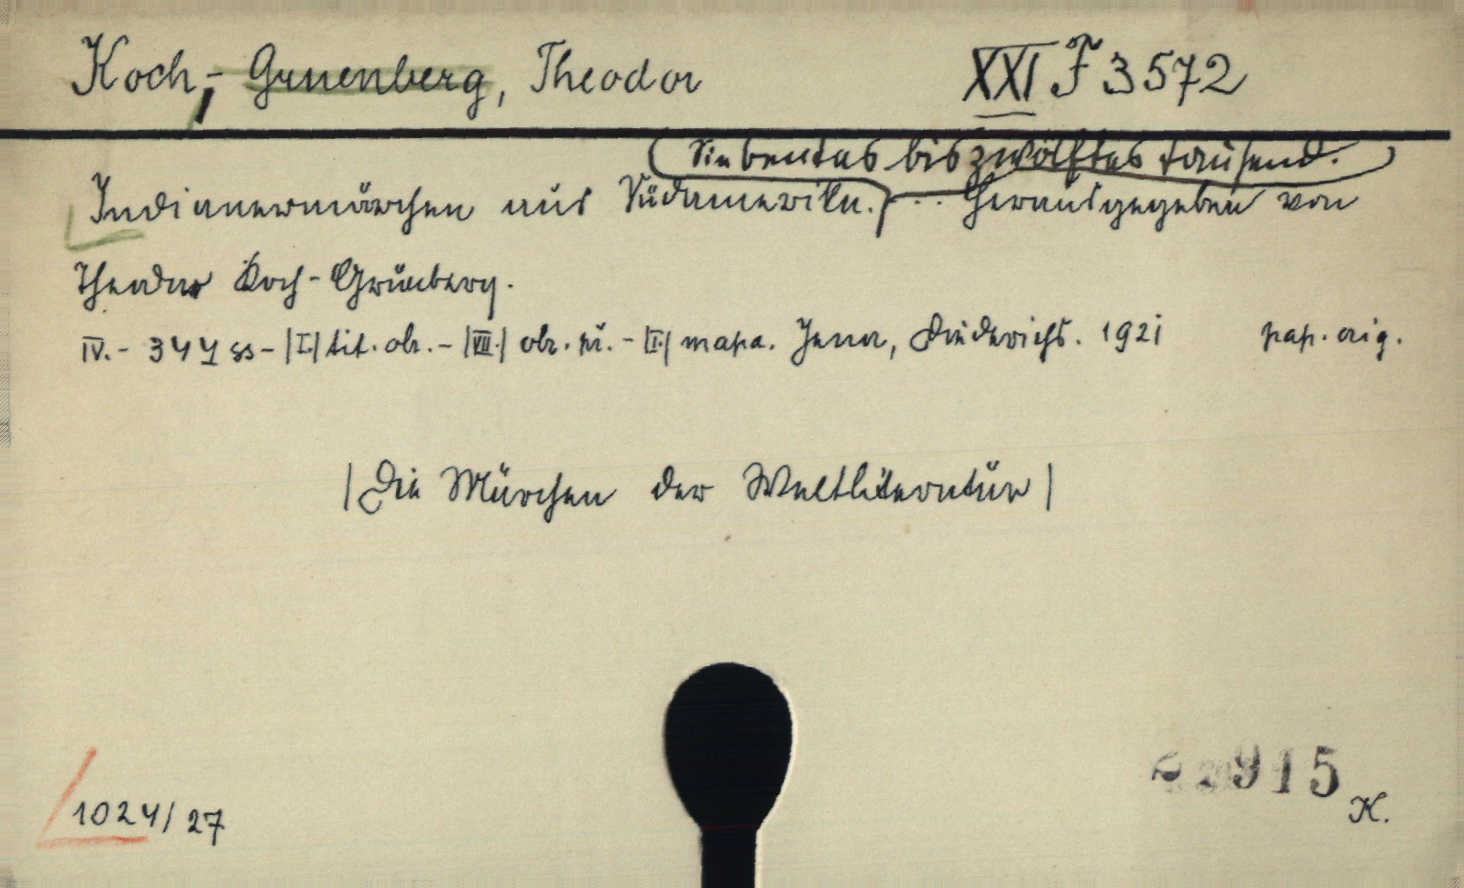 Koch,-Gruenberg, Theodor XXI F 3572
(Siebentes bis zwölftes tausend.)
Indianermärchen aus Südamerika. ... Herausgegeben von
Theodor Koch-Grünberg.
IV.- 344 ss - |I| tit. obr. - |VIII| obr. př. - |I| mapa. Jena, Diederichs. 1921 pap. orig.
|Die Märchen der Weltliteratur|
915
K.
1024/27